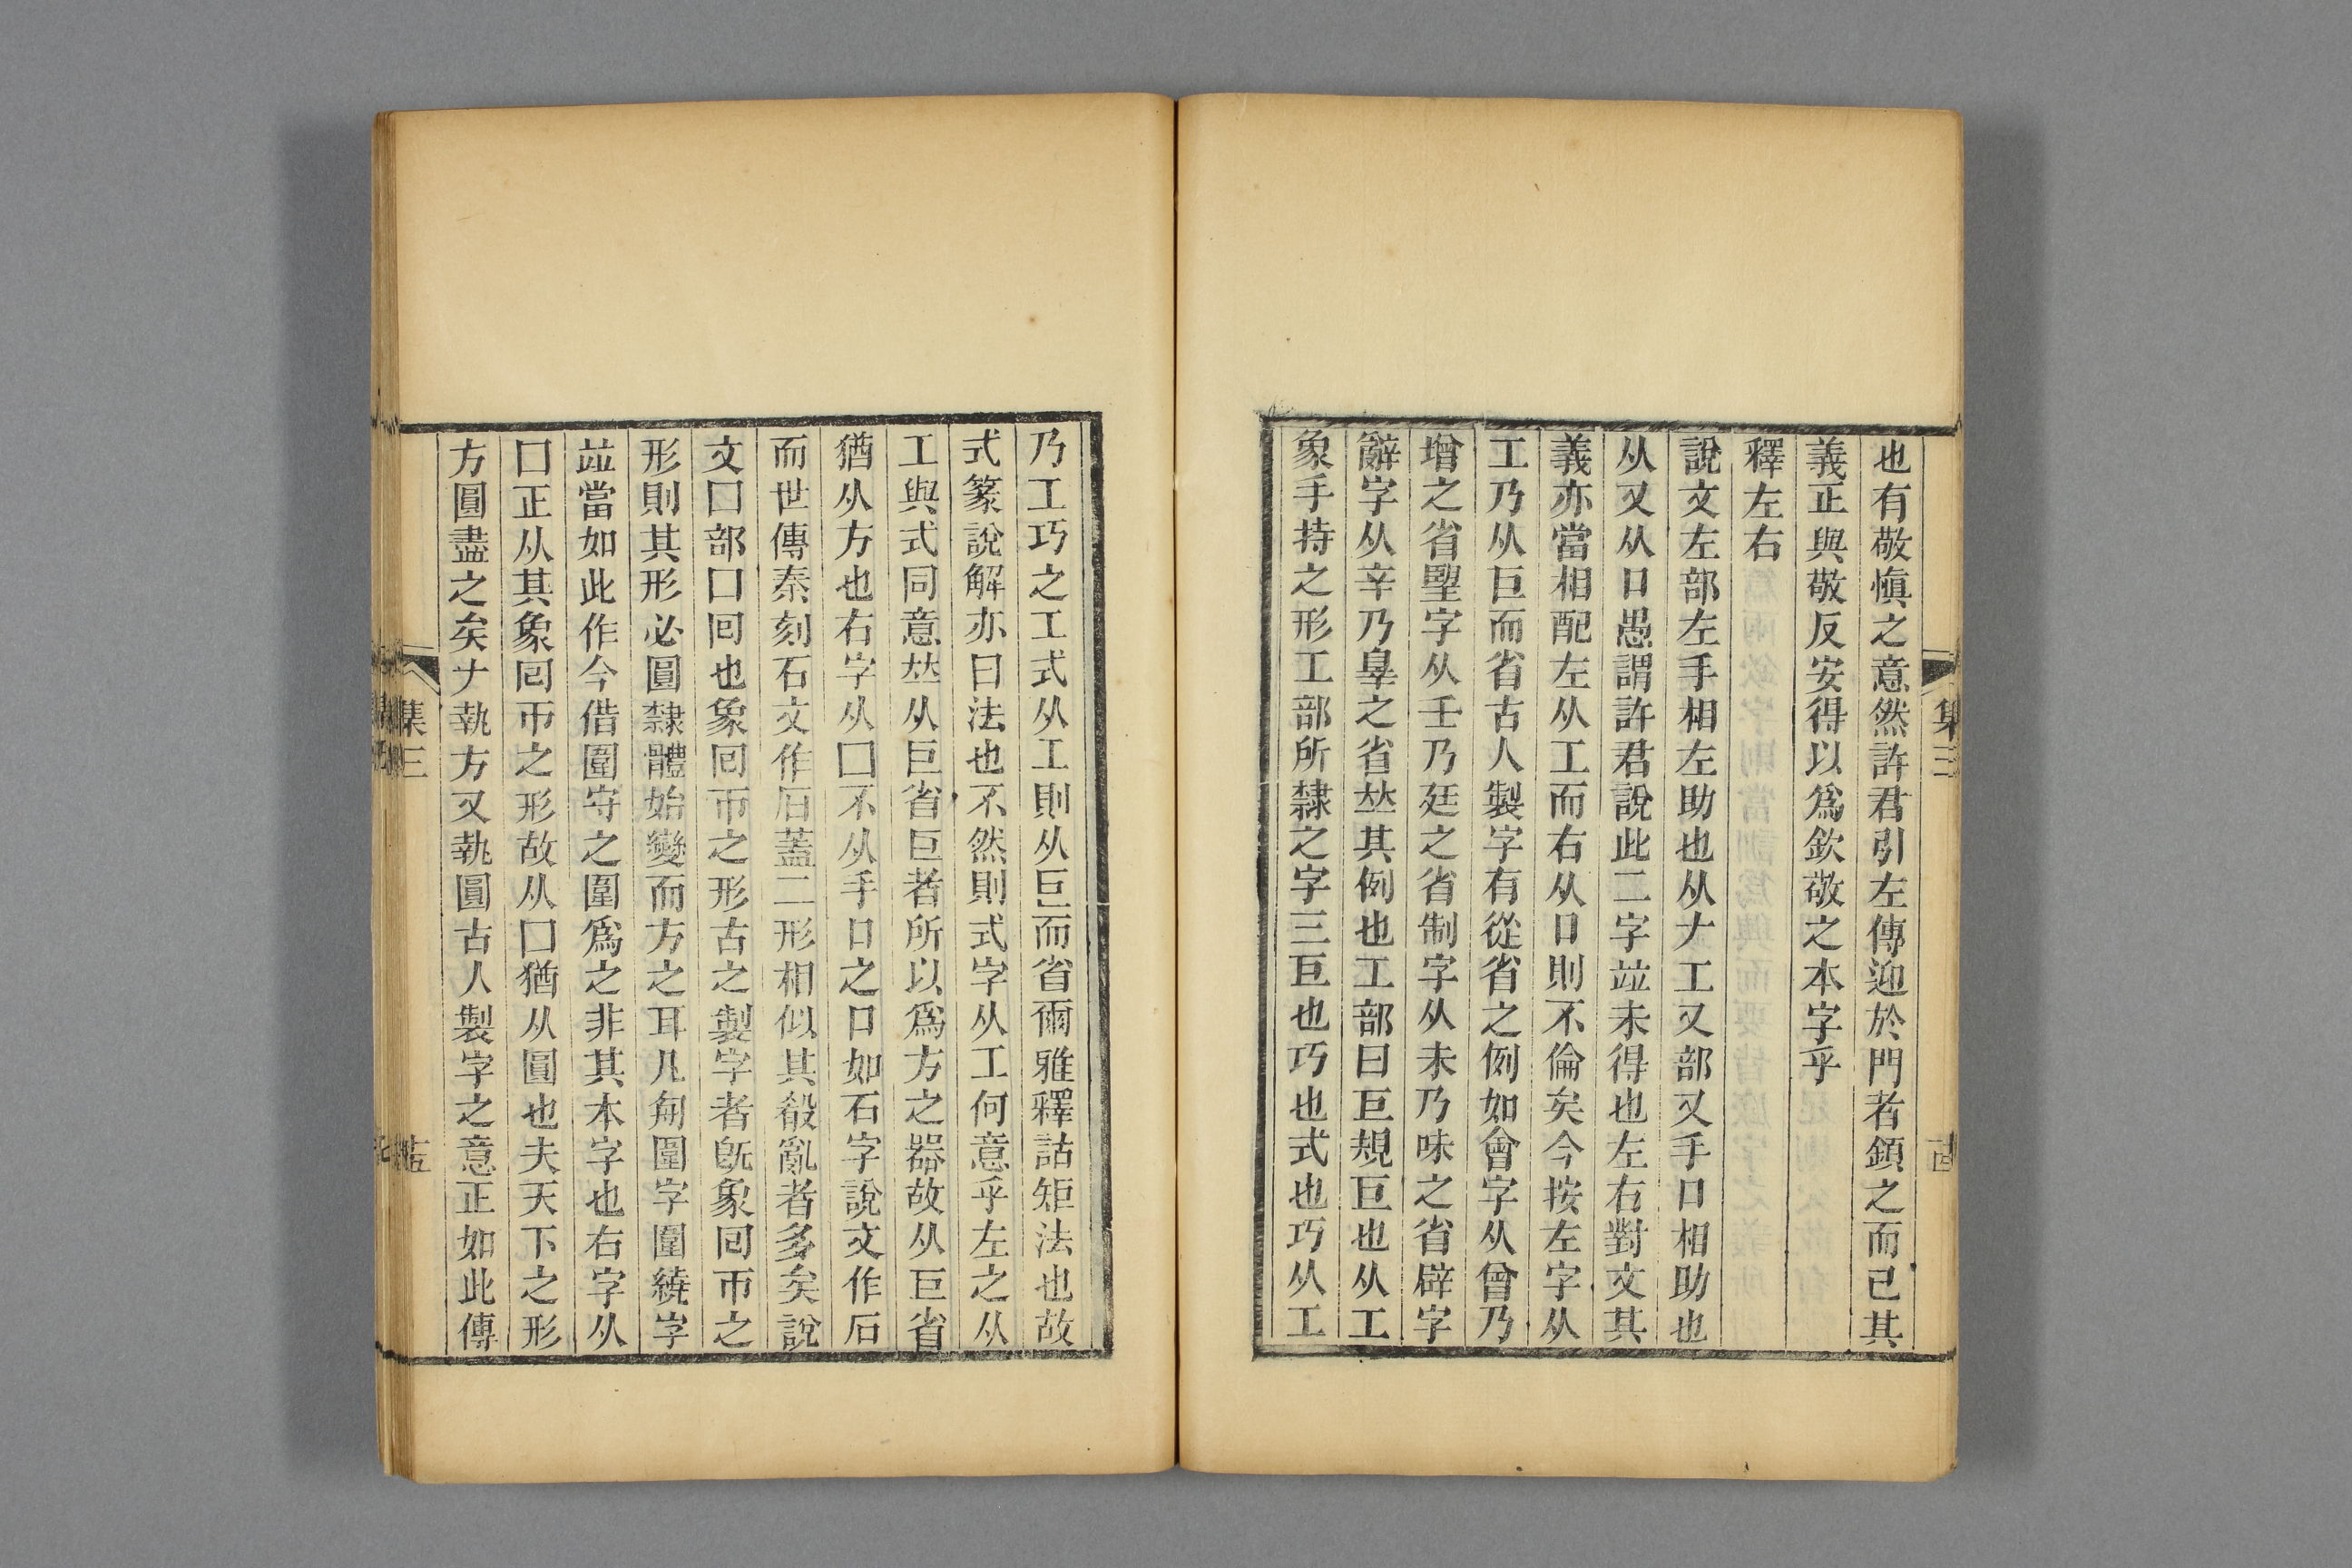 也有敬愼之意然許君引左傳迎於門者鎮之而已其
義正與敬反安得以爲欽敬之本字乎
釋左右
說文左部左手相左助也从𠂇工又部又手口相助也
从又从口愚謂許君說此二字竝未得也左右對文其
義亦當相配左从工而右从口則不倫矣今按左字从
工乃从巨而省古人製字有從省之例如會字从曾乃
增之省朢字从壬乃廷之省制字从未乃味之省辟字
辭字从辛乃辠之省竝其例也工部曰巨規巨也从工
象手持之形工部所隸之字三巨也巧也式也巧从工
集三
乃工巧之工式从工則从巨而省爾雅釋詁矩法也故
式篆說解亦曰法也不然則式字从工何意乎左之从
工與式同意竝从巨省巨者所以爲方之器故从巨省
猶从方也右字从囗不从手口之口如石字說文作后
而世傳秦刻石文作石蓋二形相似其殽亂者多矣說
文囗部囗回也象回帀之形古之製字者旣象回帀之
形則其形必圓隸體始變而方之耳凡匊圍字圍繞字
竝當如此作今借圍守之圍爲之非其本字也右字从
囗正从其象回帀之形故从囗猶从圓也夫天下之形
方圓盡之矣𠂇執方又執圓古人製字之意正如此傳
集三